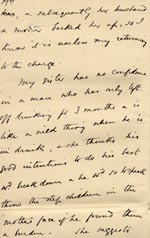 has, & subsequently her husband
& mother backed her up, so I
know it is useless my returning
to the charge.
My sister has no confidence
in a man who has only left
off drinking for 3 months & is
like a wild thing when he is
in drink, & she thinks his
good intentions to do his best
wd break down & he wd so to speak
throw the step children in the
mother's face if he found them
a burden. She suggests